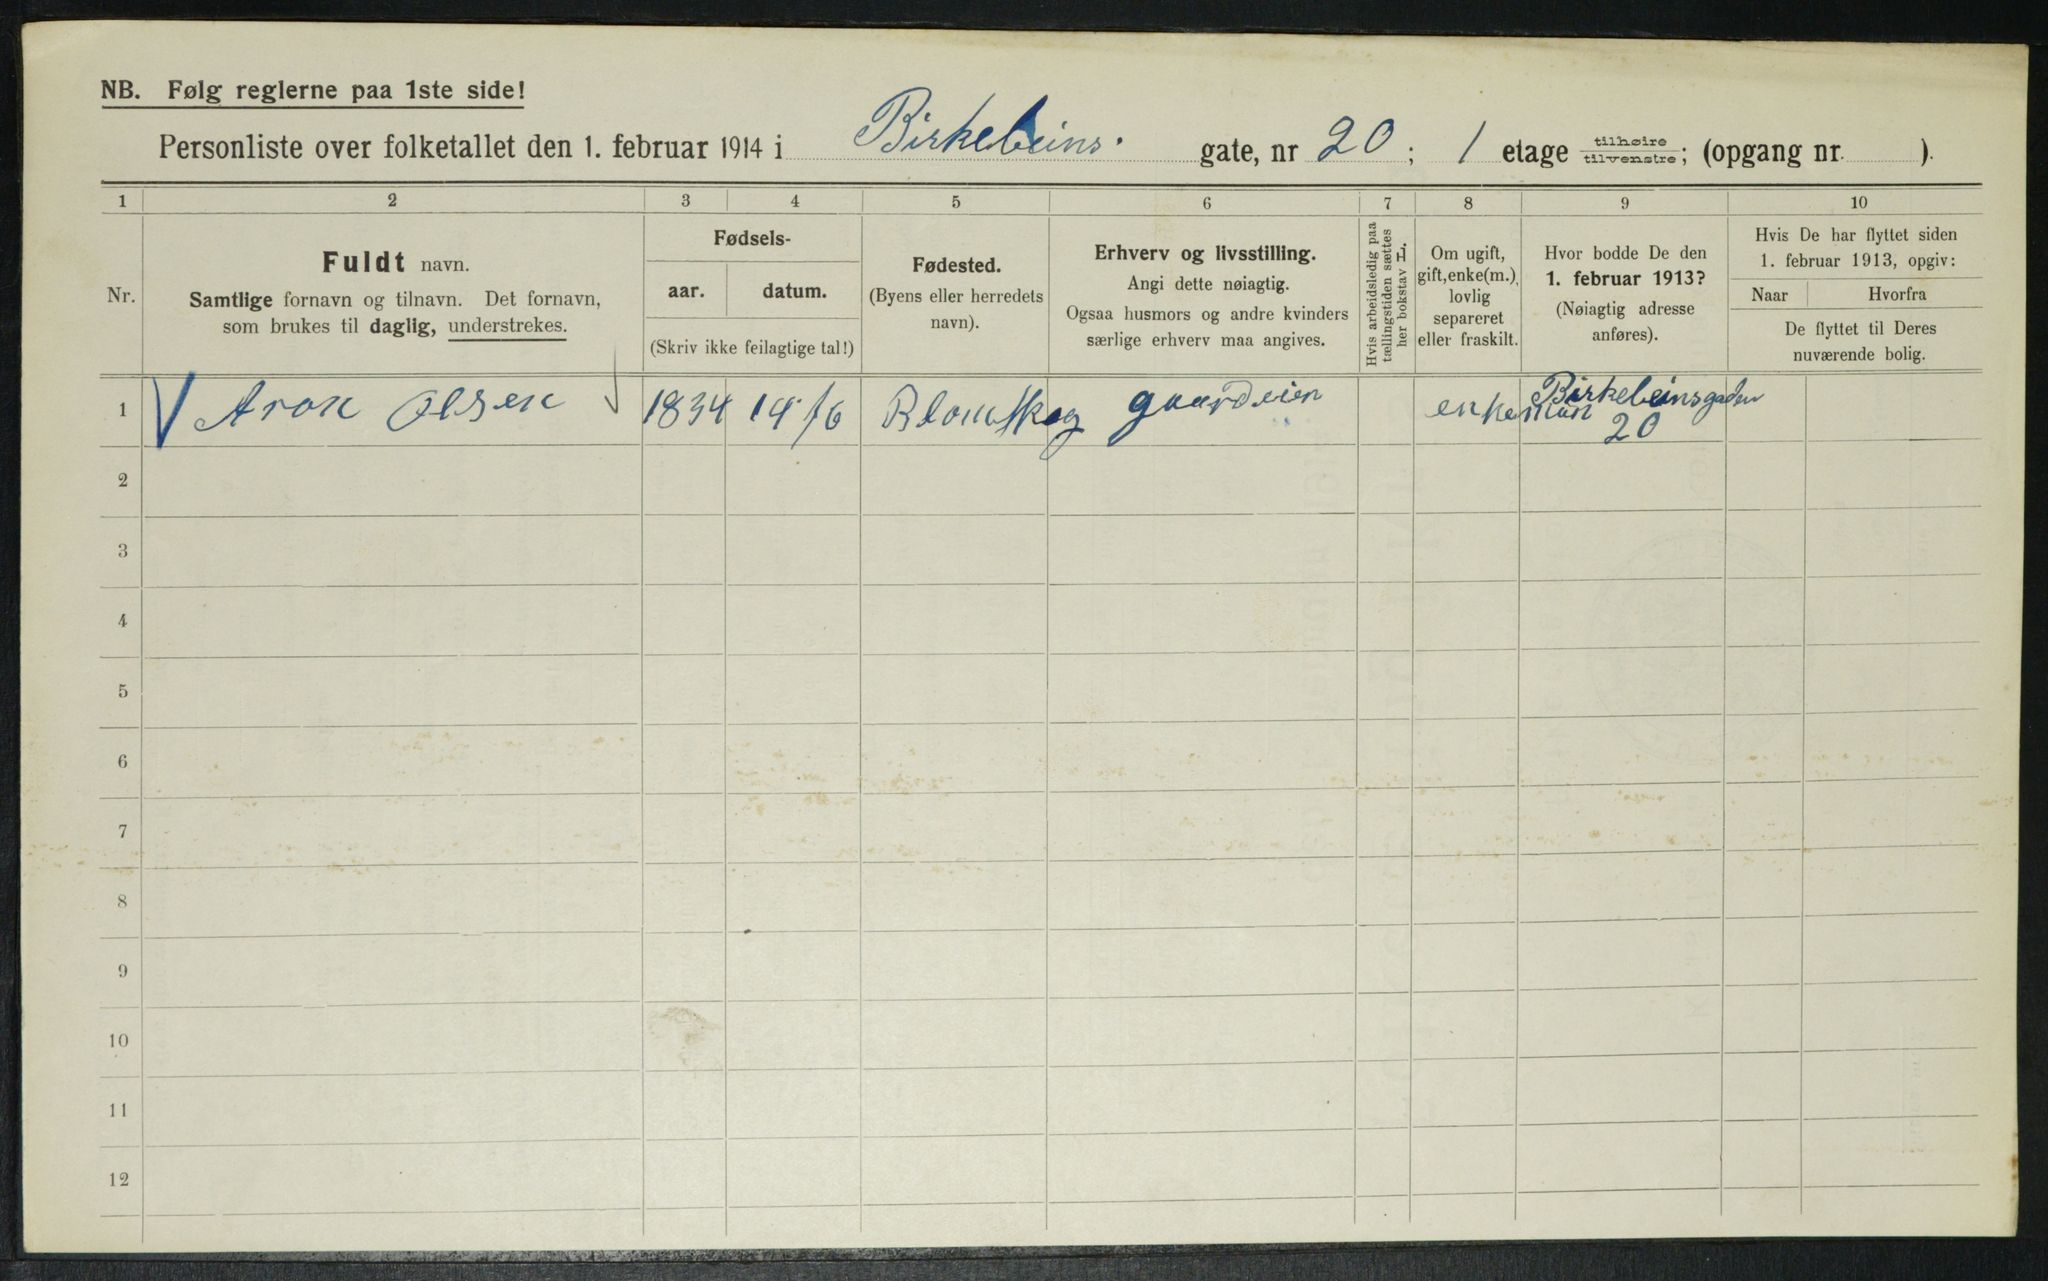 NB. Følg reglerne paa 1ste side!
Personliste over folketallet den 1. februar 1914 i Birkebeins. gate, nr 20; 1 etage tilhøire tilvenstre; (opgang nr. ).
1 2 3 4 5 6 7 8 9 10
Nr.
Fuldt navn.
Samtlige fornavn og tilnavn. Det fornavn,
som brukes til daglig, understrekes.
Fødsels-
aar. datum.
(Skriv ikke feilagtige tal!)
Fødested.
(Byens eller herredets
navn).
Erhverv og livsstilling.
Angi dette nøiagtig.
Ogsaa husmors og andre kvinders
særlige erhverv maa angives.
Hvis arbeidsledig paa
tællingstiden sættes
her bokstav L.
Om ugift,
gift, enke(m.),
lovlig
separeret
eller fraskilt.
Hvor bodde De den
1. februar 1913?
(Nøiagtig adresse
anføres).
Hvis De har flyttet siden
1. februar 1913, opgiv:
Naar Hvorfra
De flyttet til Deres
nuværende bolig.
1 Aron Olsen 1834 14/6 Blomskog gaardeier enkeman Birkebeinsgaden
20
2
3
4
5
6
7
8
9
10
11
12